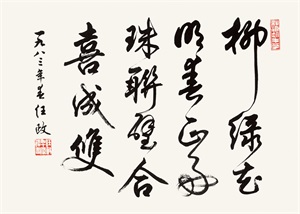 柳綠花
明春正好
珠聯璧合
喜成雙
一九八三年春任政